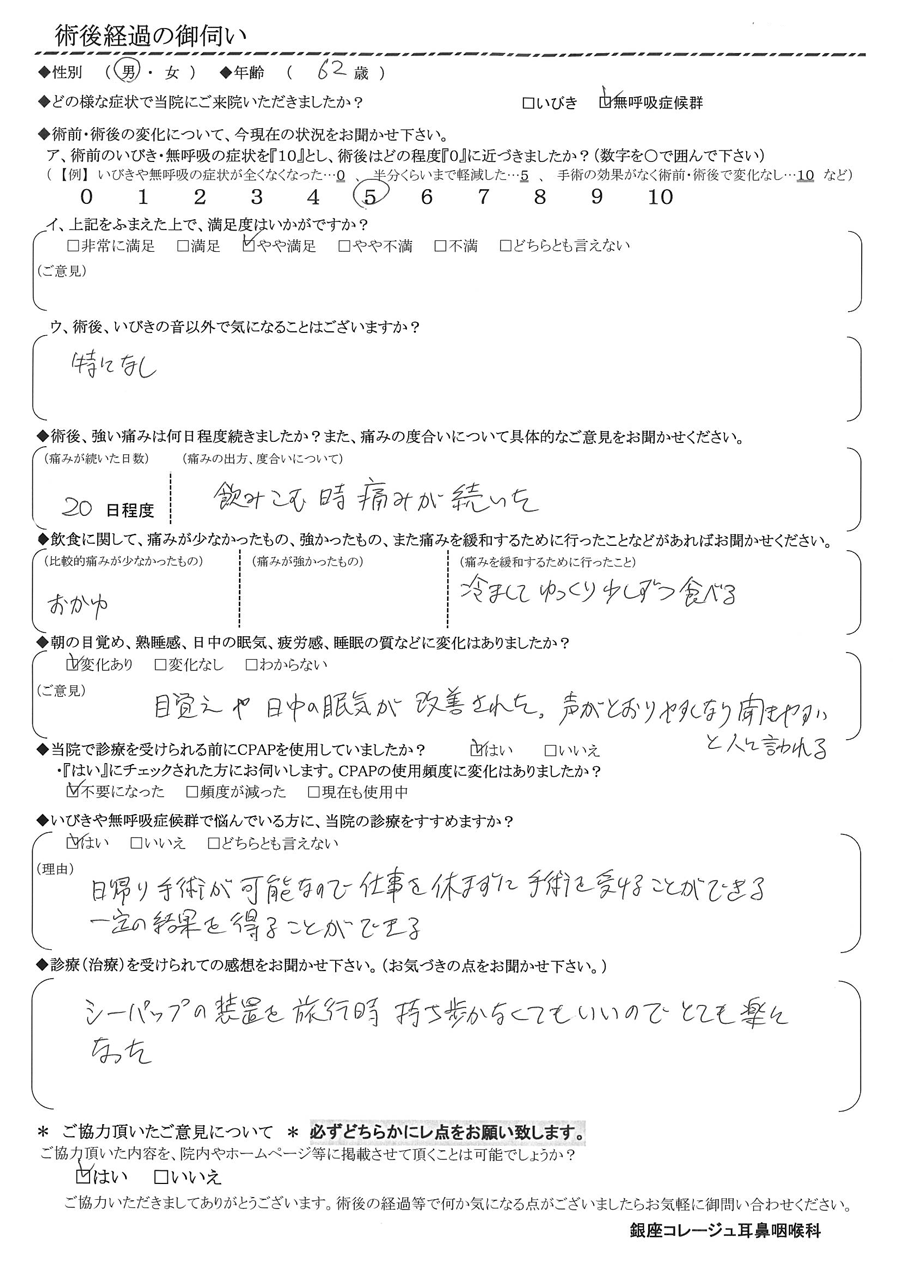 術後経過の御伺い
◆性別 （ 男 ・ 女 ） ◆年齢 （ 62 歳 ）
◆どの様な症状で当院にご来院いただきましたか？ □いびき ☑無呼吸症候群
◆術前・術後の変化について、今現在の状況をお聞かせ下さい。
ア、術前のいびき・無呼吸の症状を『10』とし、術後はどの程度『0』に近づきましたか？（数字を○で囲んで下さい）
（ 【例】 いびきや無呼吸の症状が全くなくなった…0 、 半分くらいまで軽減した…5 、 手術の効果がなく術前・術後で変化なし…10 など）
0 1 2 3 4 5 6 7 8 9 10
イ、上記をふまえた上で、満足度はいかがですか？
□非常に満足 □満足 ☑やや満足 □やや不満 □不満 □どちらとも言えない
（ご意見）
ウ、術後、いびきの音以外で気になることはございますか？
特になし
◆術後、強い痛みは何日程度続きましたか？また、痛みの度合いについて具体的なご意見をお聞かせください。
（痛みが続いた日数） （痛みの出方、度合いについて）
20 日程度 飲みこむ時痛みが続いた
◆飲食に関して、痛みが少なかったもの、強かったもの、また痛みを緩和するために行ったことなどがあればお聞かせください。
（比較的痛みが少なかったもの） （痛みが強かったもの） （痛みを緩和するために行ったこと）
おかゆ 冷ましてゆっくり少しずつ食べる
◆朝の目覚め、熟睡感、日中の眠気、疲労感、睡眠の質などに変化はありましたか？
☑変化あり □変化なし □わからない
（ご意見）
目覚えや日中の眠気が改善された。声がとおりやすくなり聞きやすい
と人に言われる
◆当院で診療を受けられる前にCPAPを使用していましたか？ ☑はい □いいえ
・『はい』にチェックされた方にお伺いします。CPAPの使用頻度に変化はありましたか？
☑不要になった □頻度が減った □現在も使用中
◆いびきや無呼吸症候群で悩んでいる方に、当院の診療をすすめますか？
☑はい □いいえ □どちらとも言えない
（理由）
日帰り手術が可能なので仕事を休まずに手術を受けることができる
一定の結果を得ることができる
◆診療（治療）を受けられての感想をお聞かせ下さい。（お気づきの点をお聞かせ下さい。）
シーパップの装置を旅行時持ち歩かなくてもいいのでとても楽に
なった
＊ ご協力頂いたご意見について ＊ 必ずどちらかにレ点をお願い致します。
ご協力頂いた内容を、院内やホームページ等に掲載させて頂くことは可能でしょうか？
☑はい □いいえ
ご協力いただきましてありがとうございます。術後の経過等で何か気になる点がございましたらお気軽に御問い合わせください。
銀座コレージュ耳鼻咽喉科